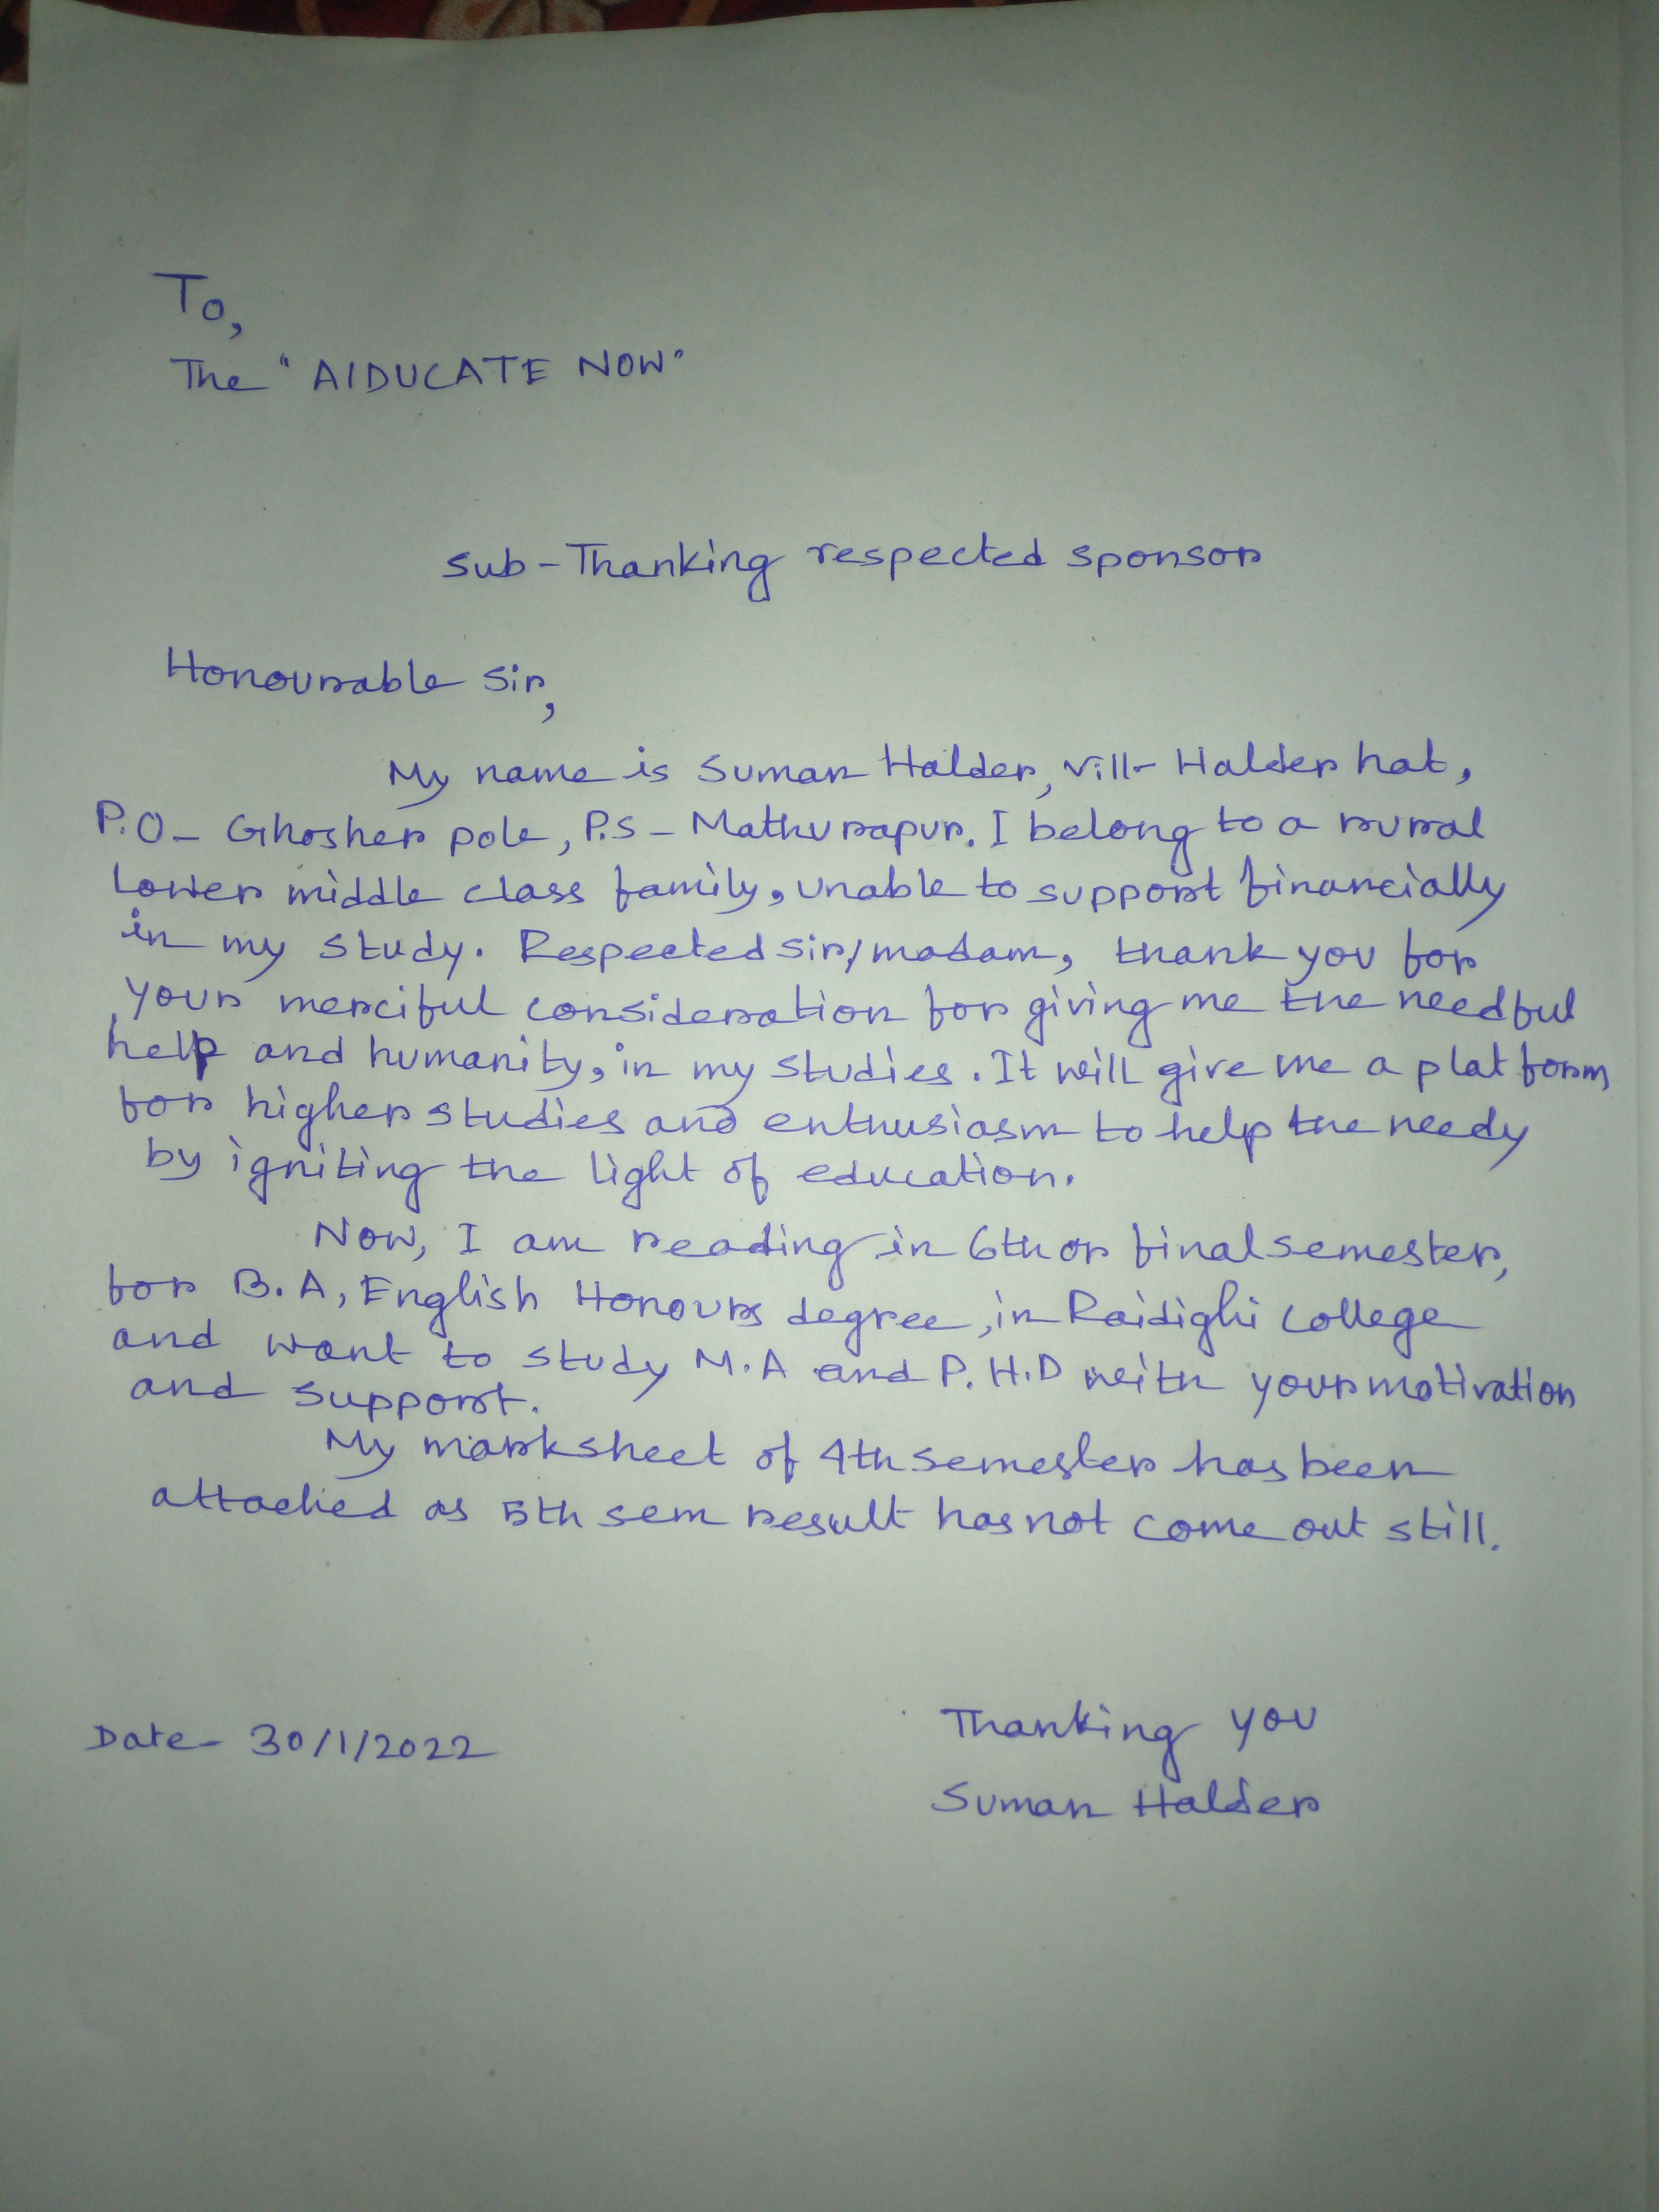 To,
The "AIDUCATE NOW"
Sub-Thanking respected sponsor
Honourable Sir,
My name is Suman Halder, Vill- Halder hat,
P.O- Ghosher pole, P.S- Mathurapur. I belong to a rural
Lower middle class family, unable to support financially
in my study. Respected sir/madam, thank you for
your merciful consideration for giving me the needful
help and humanity, in my studies. It will give me a platform
for higher studies and enthusiasm to help the needy
by igniting the light of education.
Now, I am reading in 6th or final semester,
for B.A, English Honours degree, in Raidighi College
and want to study M.A and P.H.D with your motivation
and support.
My marksheet of 4th semester has been
attached as 5th sem result has not come out still.
Thanking you
Date- 30/1/2022
Suman Halder